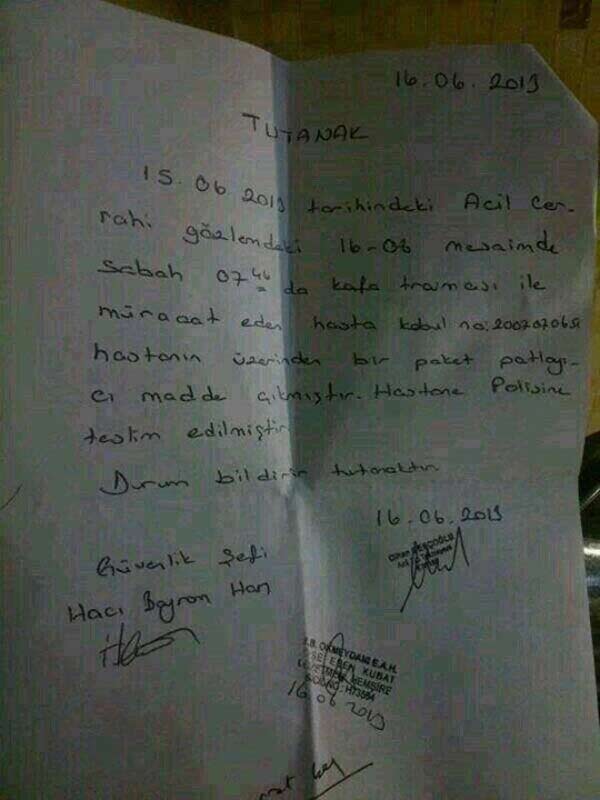 16.06.2013
TUTANAK
15.06.2013 tarihindeki Acil Cer-
rahi gözlemdeki 16-08 mesaimde
Sabah 07 46 da kafa travması ile
müracaat eden hasta kabul no:
hastanın üzerinden bir paket patlayı-
cı madde çıkmıştır. Hastane Polisine
teslim edilmiştir
Durum bildirir tutanaktır
16.06.2013
Güvenlik Şefi
Hacı Bayram Han
S.B. OKMEYDANI E.A.H.
KUBAT
HEMŞİRE
16 06 2013